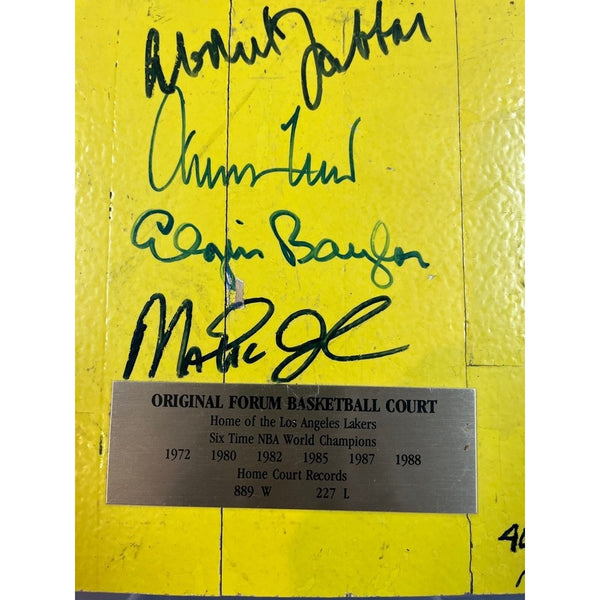 Jabbar
Elgin Baylor
Magic J
ORIGINAL FORUM BASKETBALL COURT
Home of the Los Angeles Lakers
Six Time NBA World Champions
1972 1980 1982 1985 1987 1988
Home Court Records
889 W 227 L